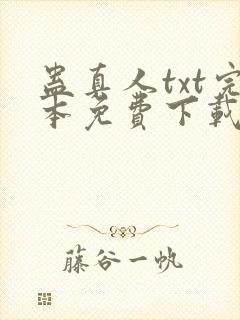 蛊真人txt完
本免費下載
藤谷一帆